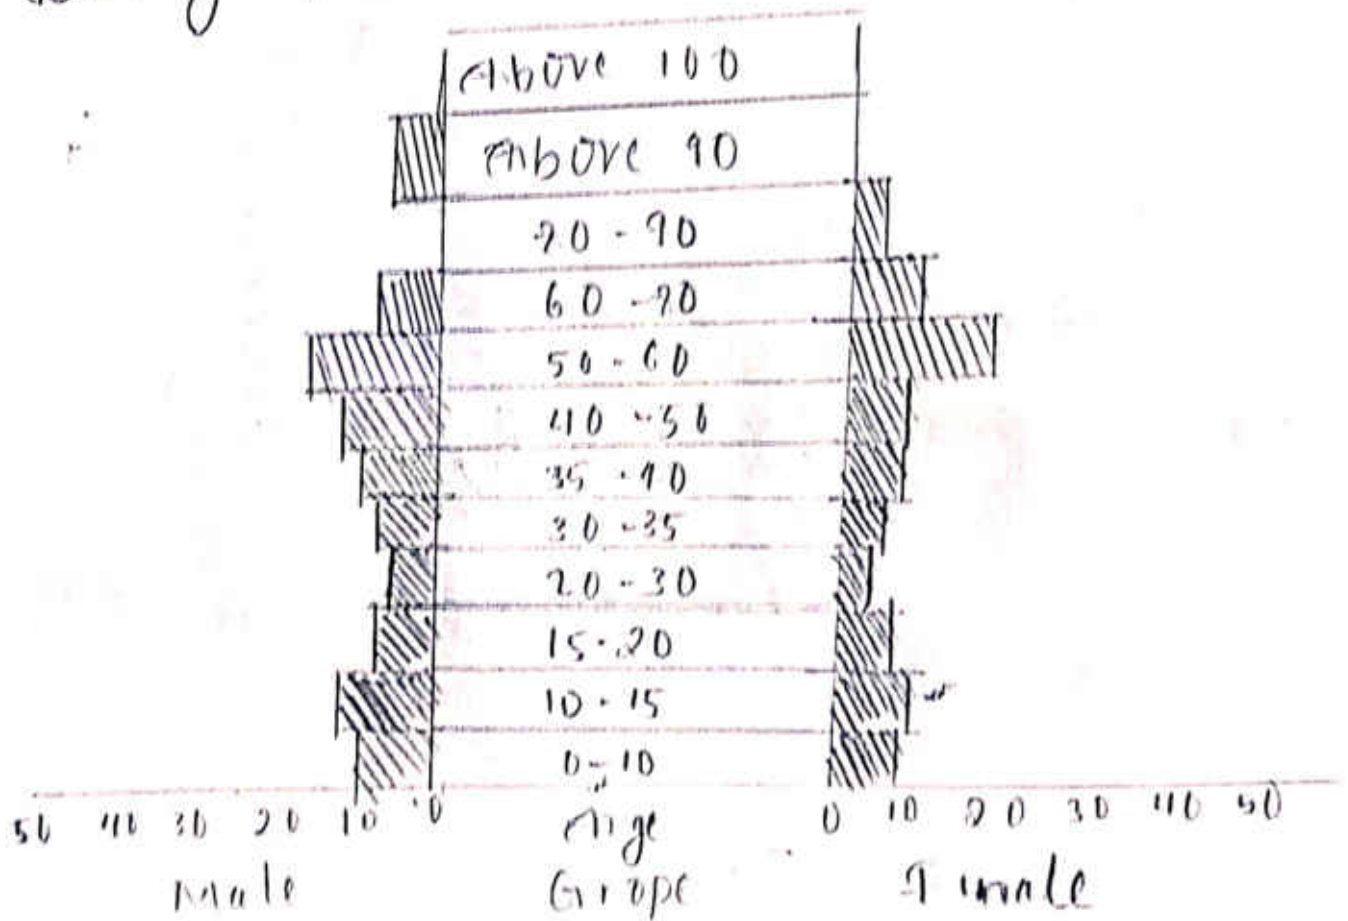 Above 100
Above 90
70-90
60-70
50-60
40-50
35-40
30-35
20-30
15-20
10-15
0-10
50 40 30 20 10 0 Age 0 10 20 30 40 50
Male Grope Female